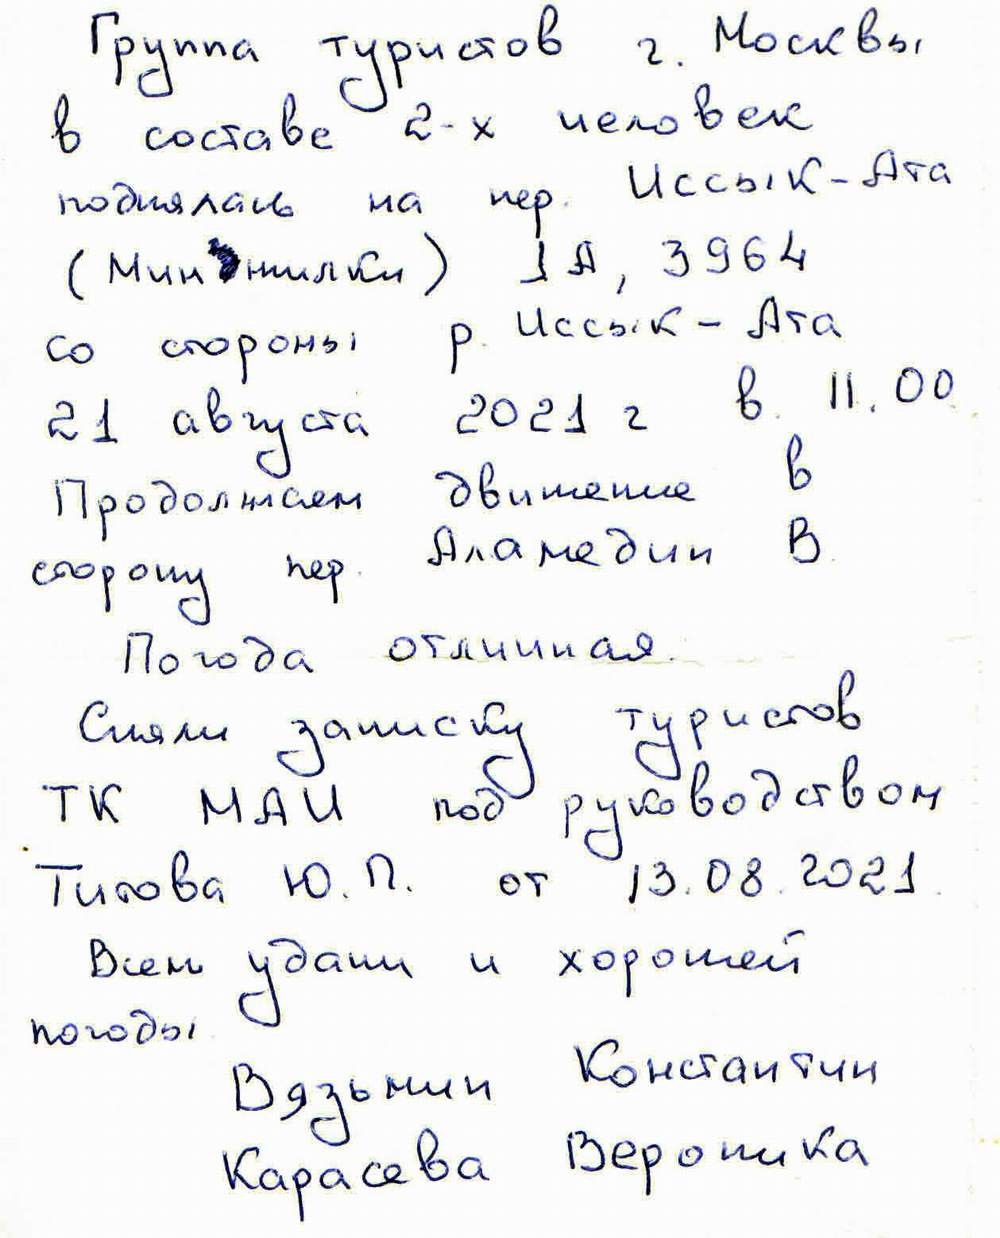 Группа туристов г. Москвы
в составе 2-х человек
поднялась на пер. Иссык-Ата
(Минжилки) 1А, 3964
со стороны р. Иссык-Ата
21 августа 2021 г в 11.00
Продолжаем движение в
сторону пер. Аламедин В.
Погода отличная.
Сняли записку туристов
ТК МАИ под руководством
Титова Ю.П. от 13.08.2021.
Всем удачи и хорошей
погоды.
Вязьмин Константин
Карасева Вероника